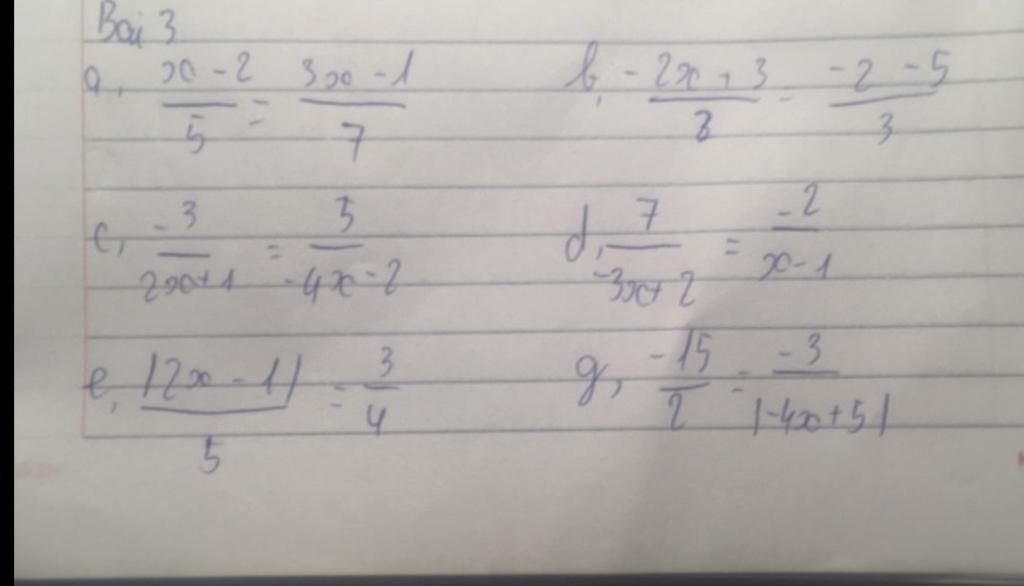 Bài 3
a, (x - 2)/5 = (3x - 1)/7 b, (-2x + 3)/8 = (-2 - 5)/3
c, -3/(2x+1) = 5/(-4x - 2) d, 7/(-3x+2) = -2/(x-1)
e, |2x - 1|/5 = 3/4 g, -15/2 = -3/|-4x+5|